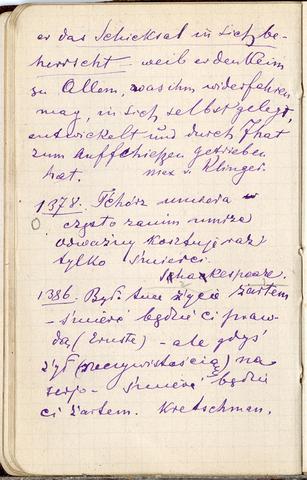 er das Schicksal in sich be-
herrscht – weil er den Keim
zu Allem, was ihm widerfahren
mag, in sich selbst gelegt,
entwickelt und durch That
zum Auffschießen getrieben
hat. Max v. Klinger.
1378. Tchórz umiera
często zanim umrze
odważny kosztuje raz
tylko śmierci.
Schackespeare.
1386. Był tuce życie żartem
– śmierć będzie ci praw-
dą (Ernste) – ale gdyś
żył (rzeczywistością) na
serjo – śmierć będzie
ci żartem. Kretschman.